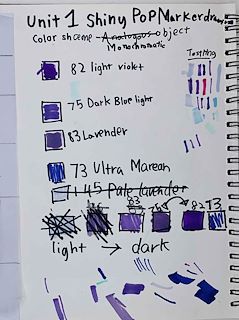 Unit 1 Shiny Pop Marker drawing
Color shceme Analogous object
Monochromatic
Testing
82 light violet
75 Dark Blue light
83 Lavender
73 Ultra Marean
1145 Pale lavender
83 75 82 73
light → dark